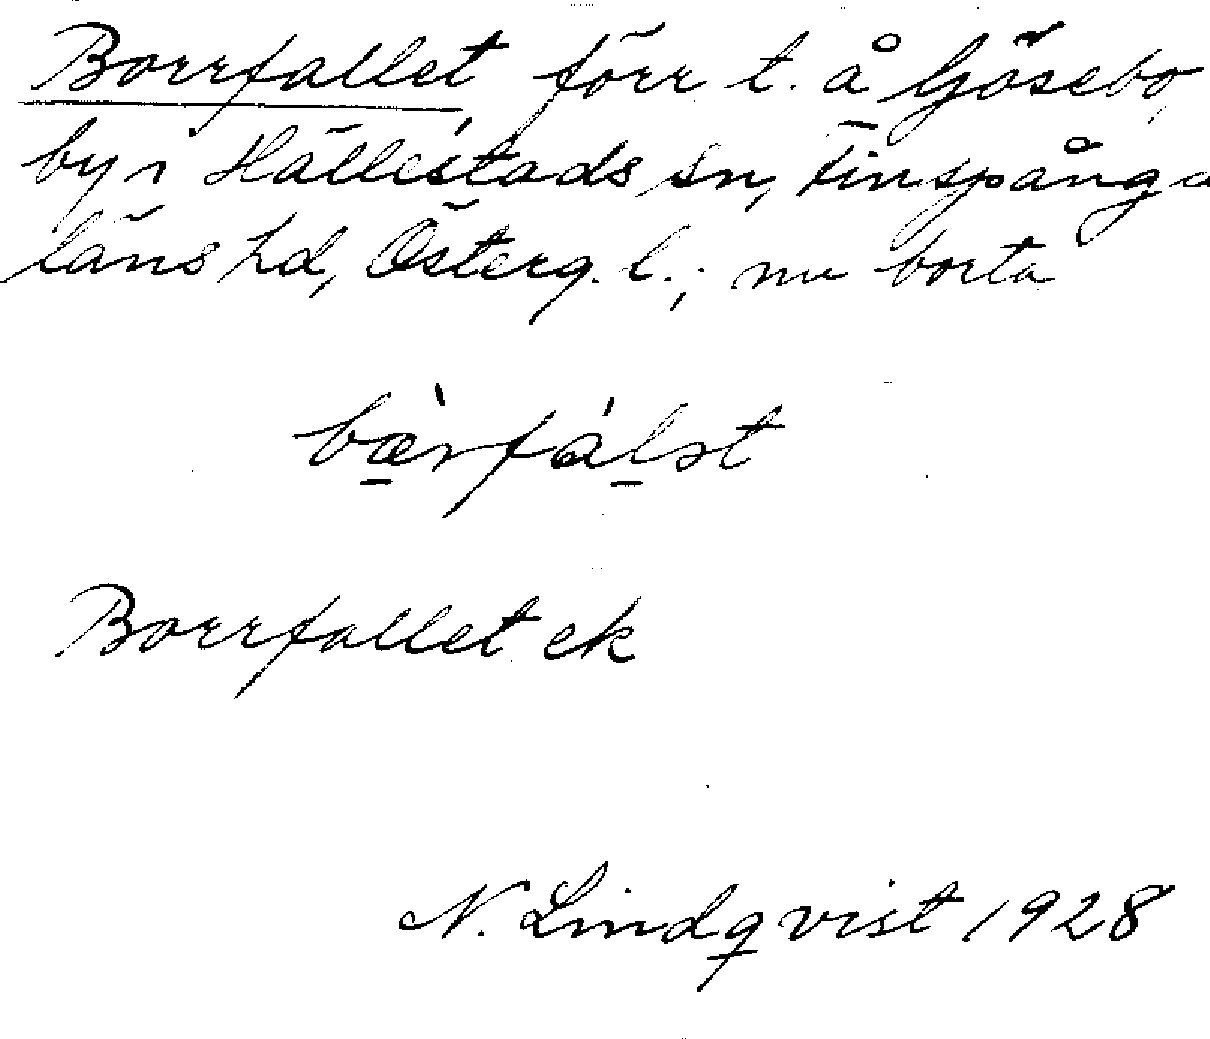 Borrfallet, förr t. å Gösebo
by i Hällestads sn, Finspånga
läns hd, Österg. l.; nu borta
bæ̀rfálst
Borrfallet ek
N. Lindqvist 1928